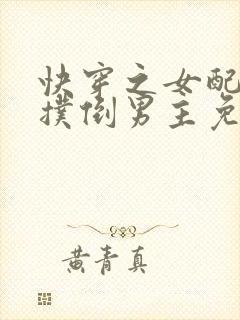 快穿之女配
撲倒男主免
黄青真